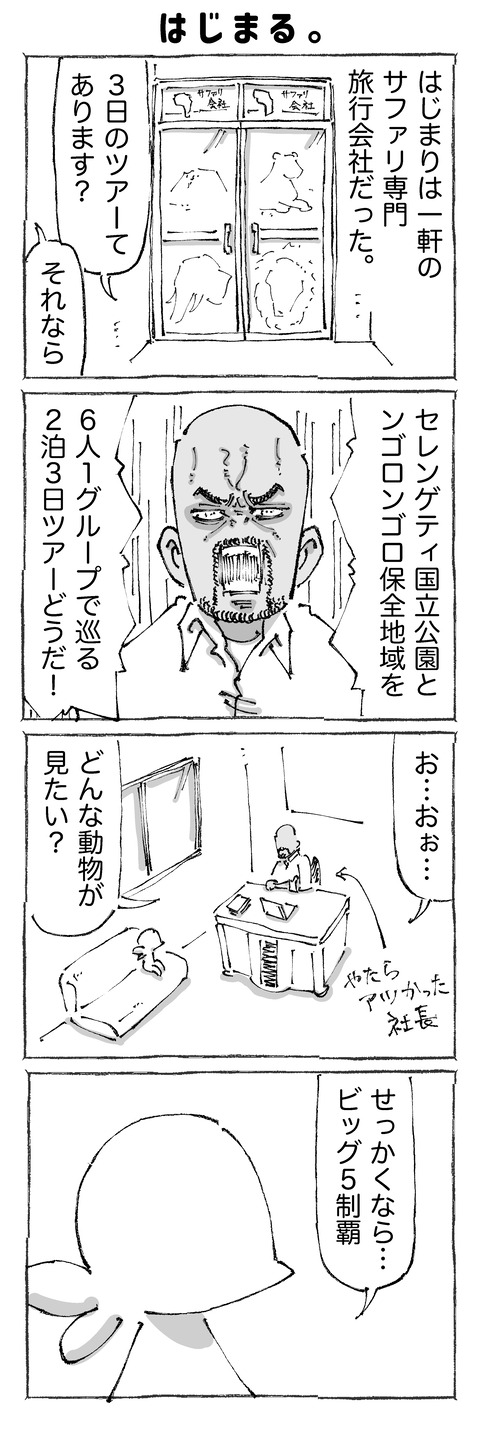 はじまる。
はじまりは一軒の
サファリ専門
旅行会社だった。
サファリ
会社
サファリ
会社
3日のツアーて
あります?
それなら
セレンゲティ国立公園と
ンゴロンゴロ保全地域を
6人1グループで巡る
2泊3日ツアーどうだ!
お…おぉ…
やたら
アツかった
社長
どんな動物が
見たい?
せっかくなら…
ビッグ5制覇